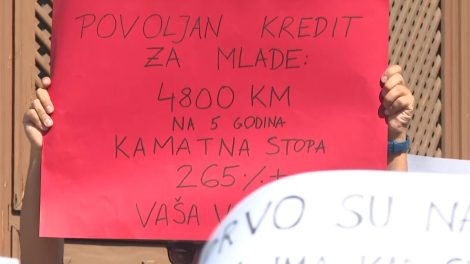 POVOLJAN KREDIT
ZA MLADE:
4800 KM
NA 5 GODINA
KAMATNA STOPA
265%+
VAŠA
PRVO SU NA
IMA